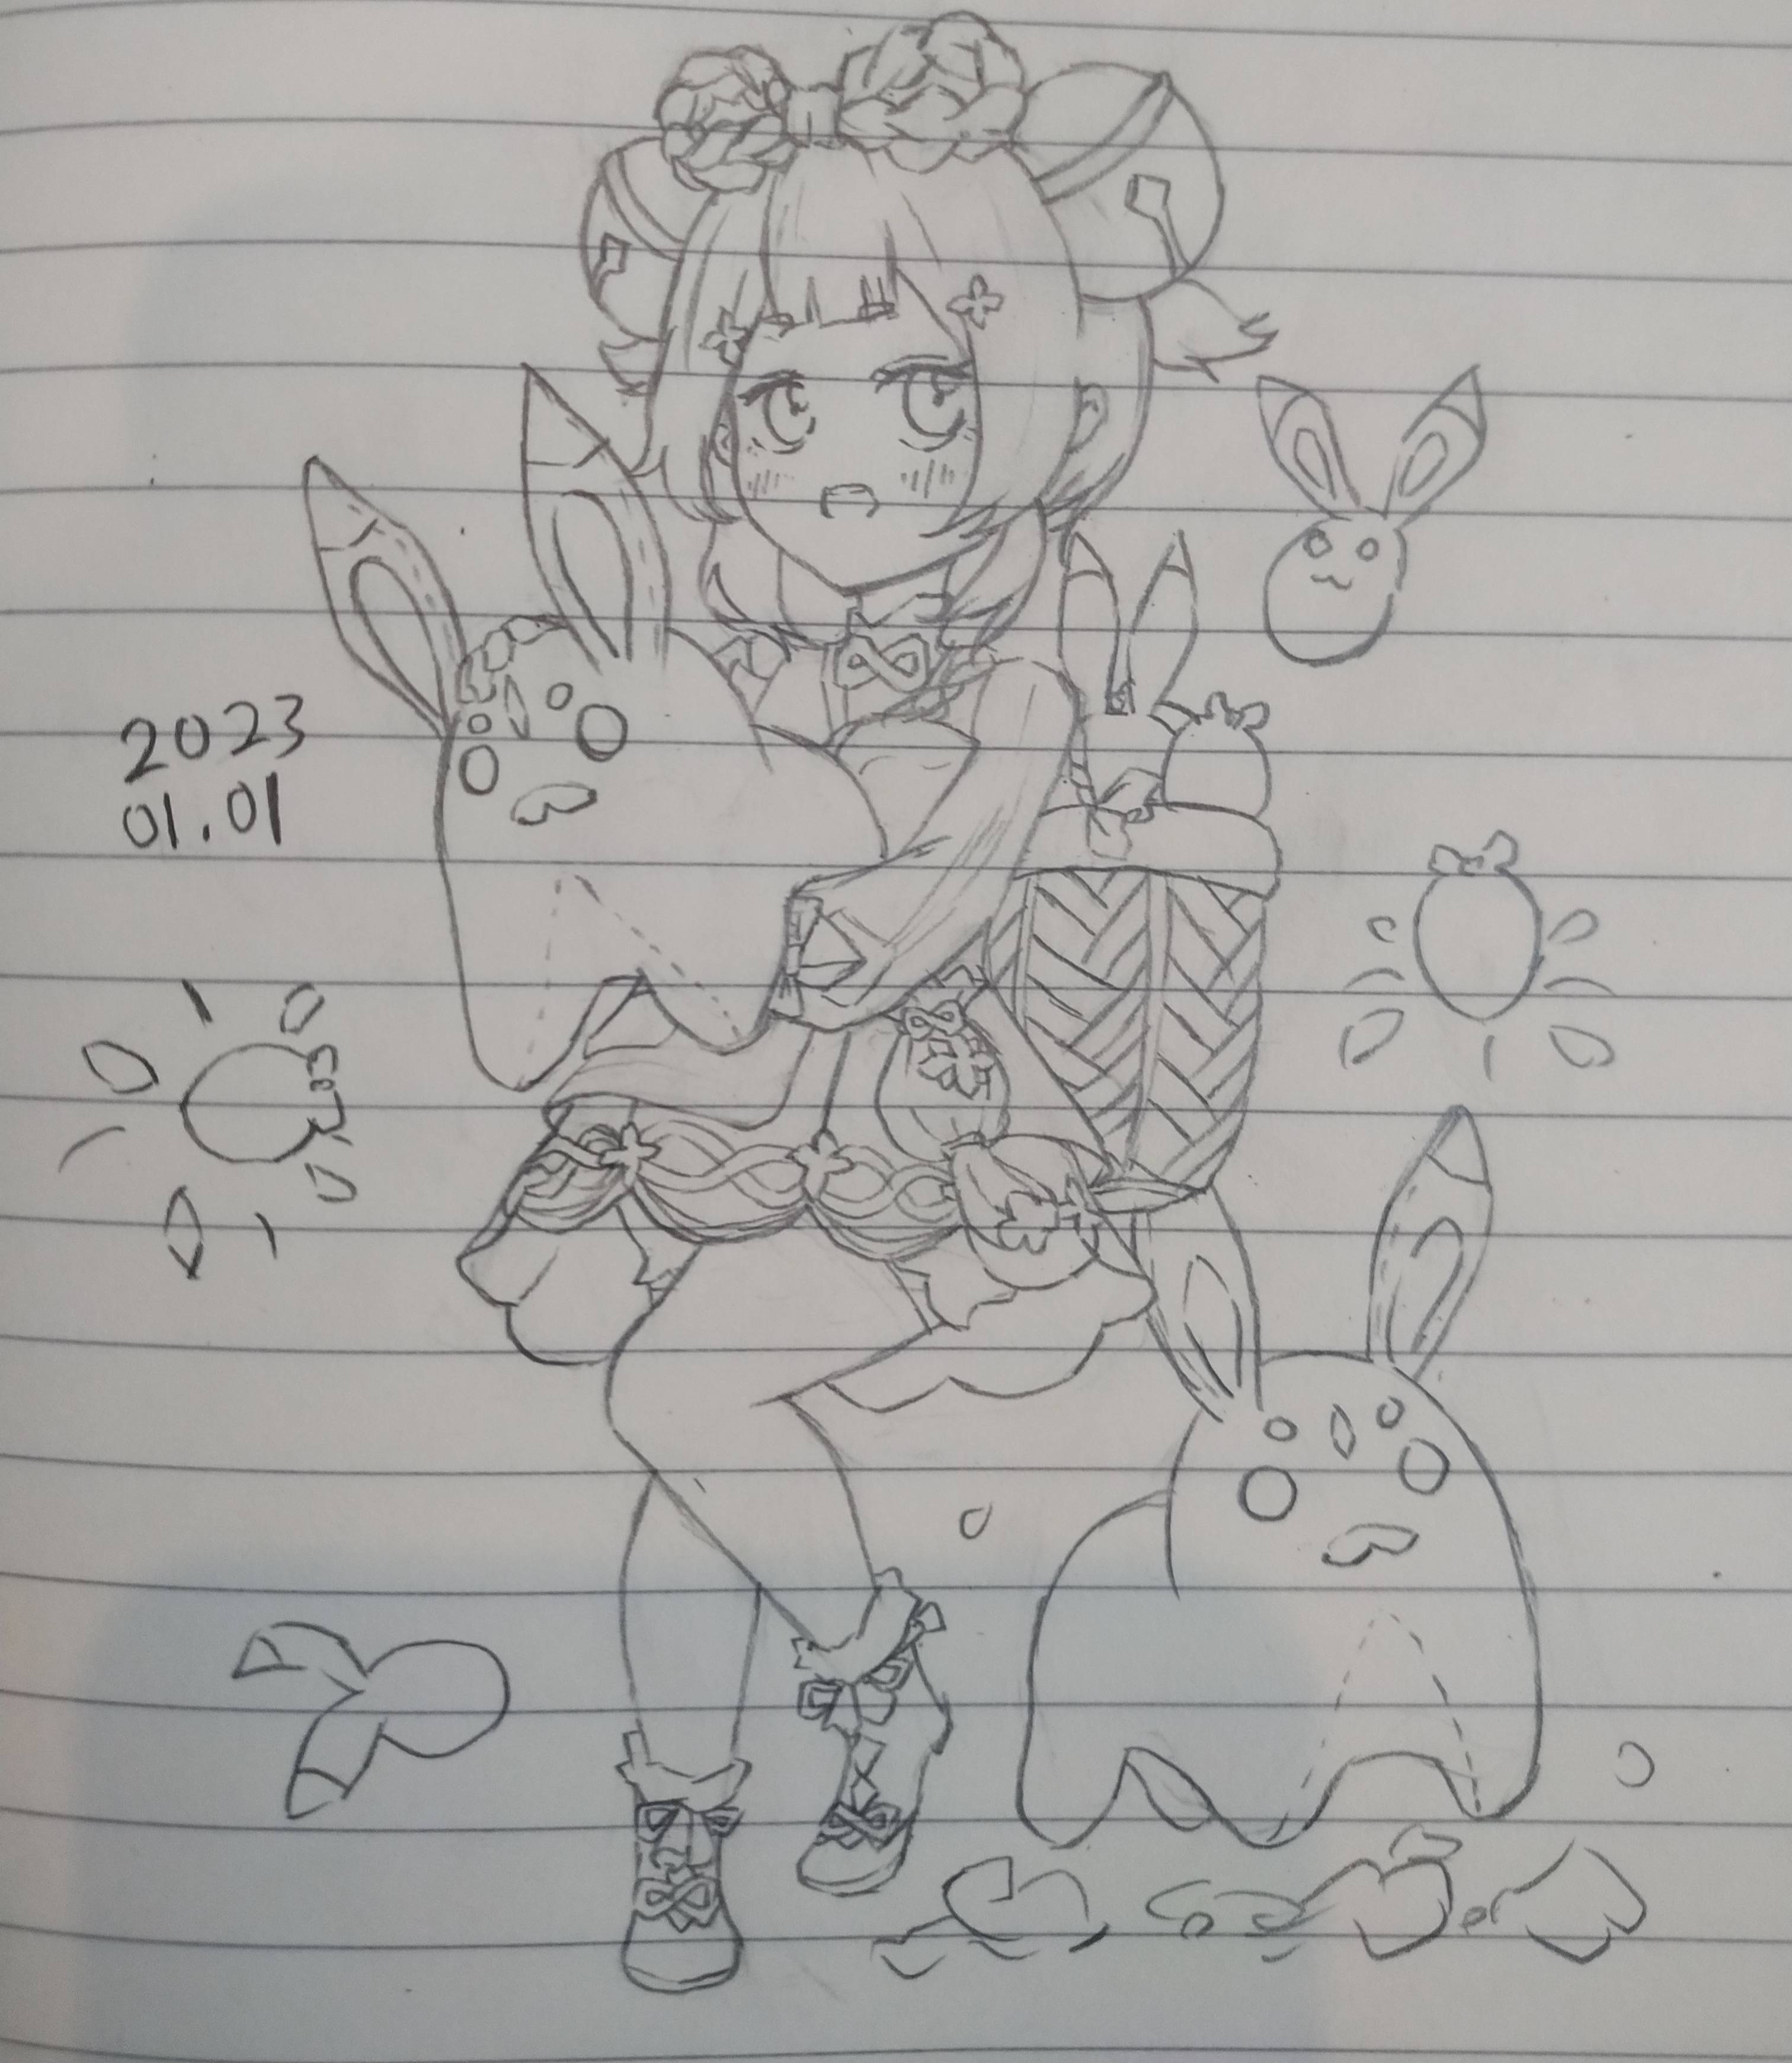 2023
01.01